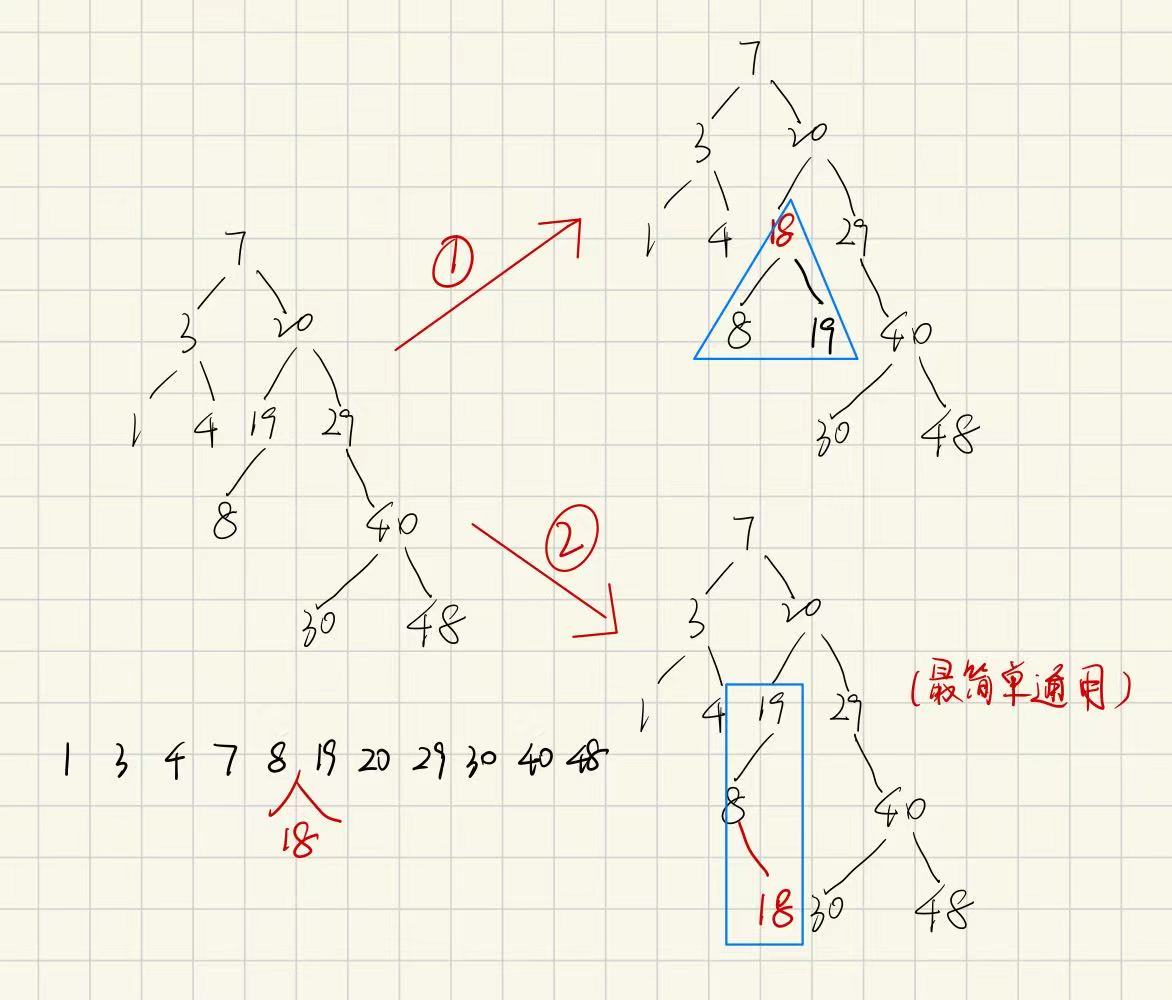 7
3 20
1 4 19 29
8 40
30 48
①
7
3 20
1 4 18 29
8 19 40
30 48
②
7
3 20
1 4 19 29
8 40
18 30 48
(最简单通用)
1 3 4 7 8 19 20 29 30 40 48
18